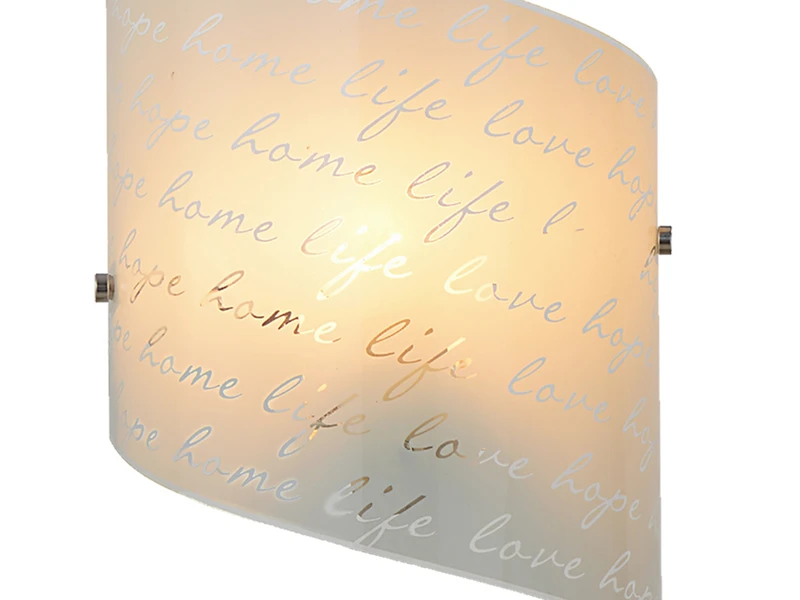 home life love
hope home life love hop
hope home life l
hope home life love hope
hope home life love hop
hope home life love hope
hope home life love hop